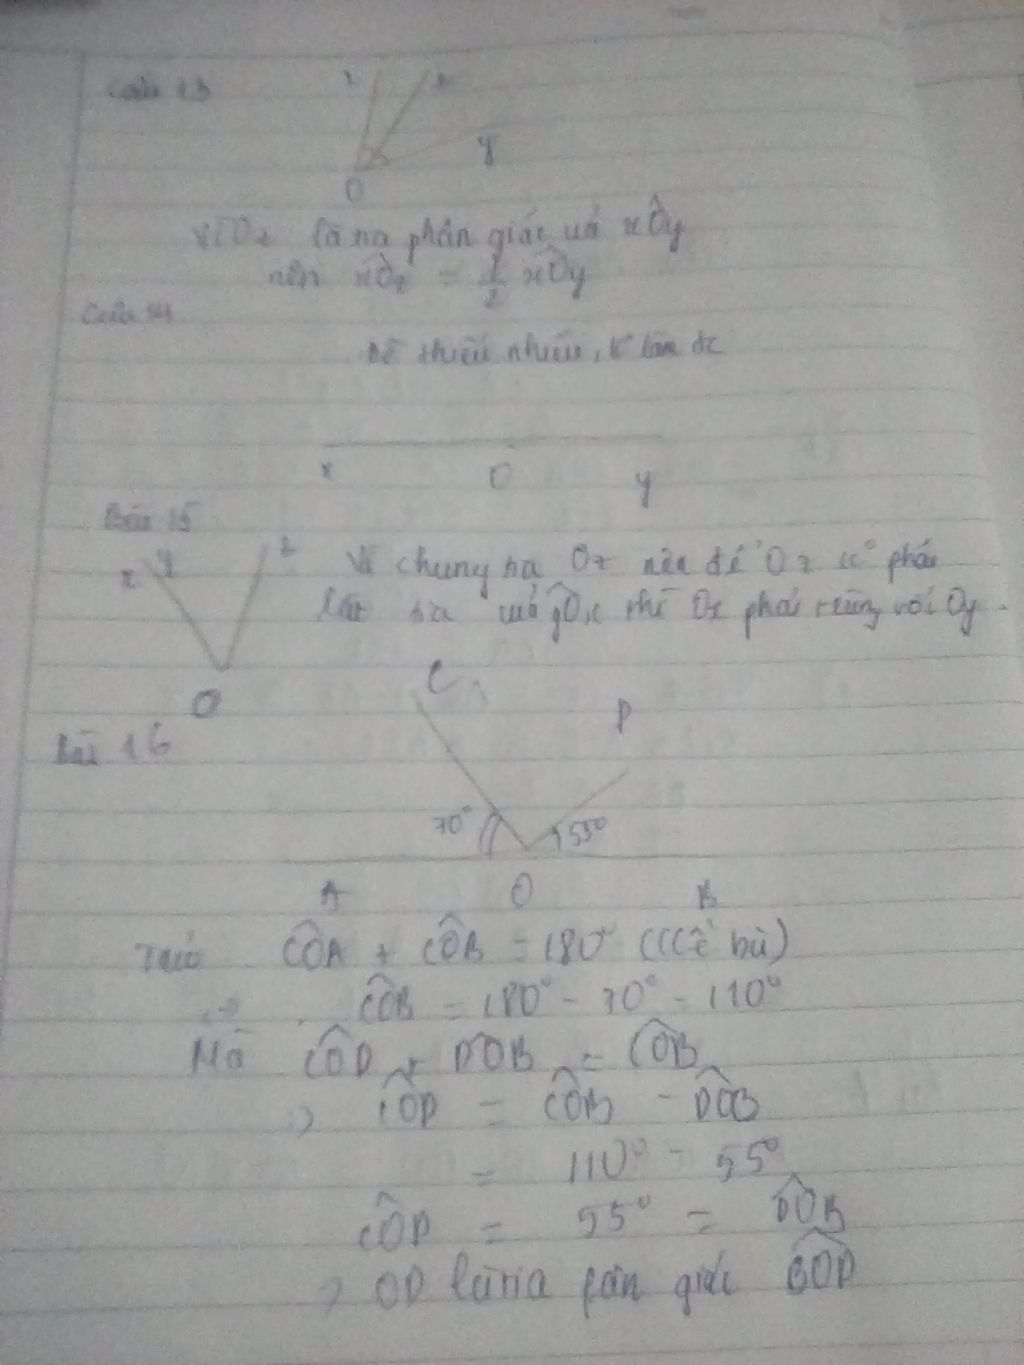 Câu 13
z
y
O
Vì Oz là tia phân giác của xÔy
nên xÔz = 1/2 xÔy
Câu 14
Đề thiếu nhiều, k làm đc
x O y
Bài 15
x y z
Vì chung tia Oz nên để Oz là phân
của yÔx thì Ox phải trùng với Oy.
O
C
D
Bài 16
70° 55°
A O B
Ta có CÔA + CÔB = 180° (kề bù)
=> CÔB = 180° - 70° = 110°
Mà CÔD + DÔB = CÔB
=> CÔD = CÔB - DÔB
= 110° - 55°
CÔD = 55° = DÔB
=> OD là tia fân giác BÔD